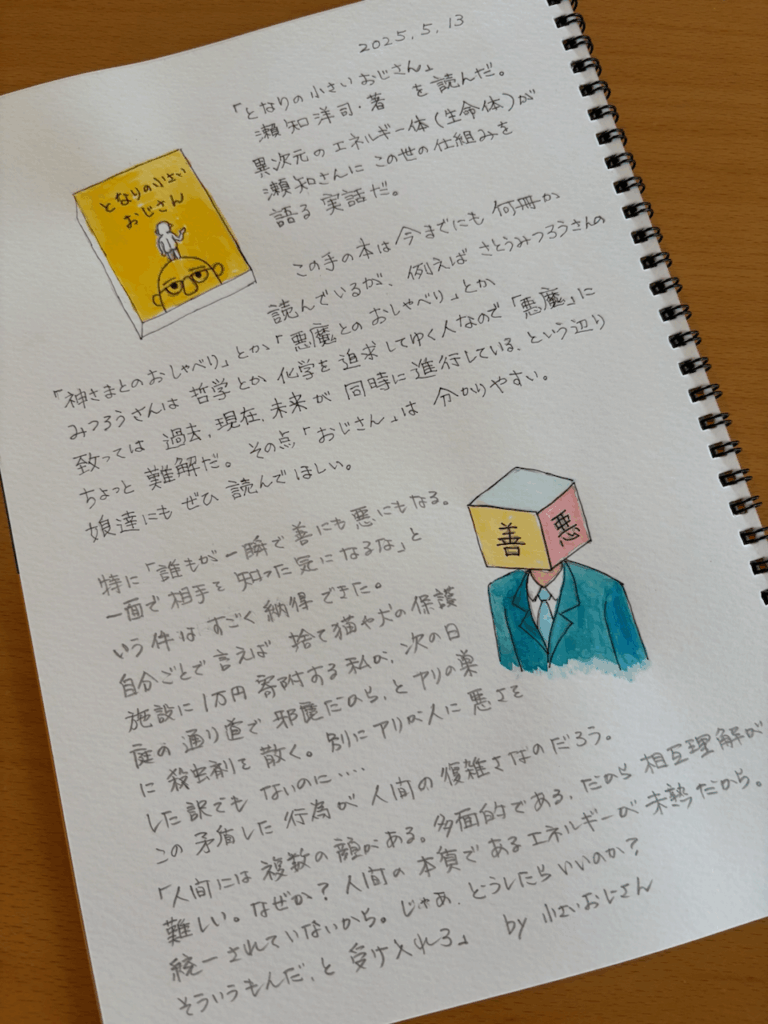 2025.5.13
「となりの小さいおじさん」
瀬知洋司・著 を読んだ。
異次元のエネルギー体(生命体)が
瀬知さんにこの世の仕組みを
語る実話だ。
となりの小さい
おじさん
この手の本は今までにも何冊か
読んでいるが、例えばさとうみつろうさんの
「神さまとのおしゃべり」とか「悪魔とのおしゃべり」とか
みつろうさんは哲学とか化学を追求してゆく人なので「悪魔」に
致っては過去、現在、未来が同時に進行している、という辺り
ちょっと難解だ。その点「おじさん」は分かりやすい。
娘達にもぜひ読んでほしい。
特に「誰もが一瞬で善にも悪にもなる。
一面で相手を知った気になるな」と
いう件はすごく納得できた。
自分ごとで言えば捨て猫や犬の保護
施設に1万円寄附する私が、次の日
庭の通り道で邪魔だから、とアリの巣
に殺虫剤を散く。別にアリが人に悪さを
した訳でもないのに....
この矛盾した行為が人間の復雑さなのだろう。
善
悪
「人間には複数の顔がある。多面的である、だから相互理解が
難しい。なぜか?人間の本質であるエネルギーが未熟だから。
統一されていないから。じゃあ、どうしたらいいのか?
そういうもんだ、と受け入れろ」 by 小さいおじさん